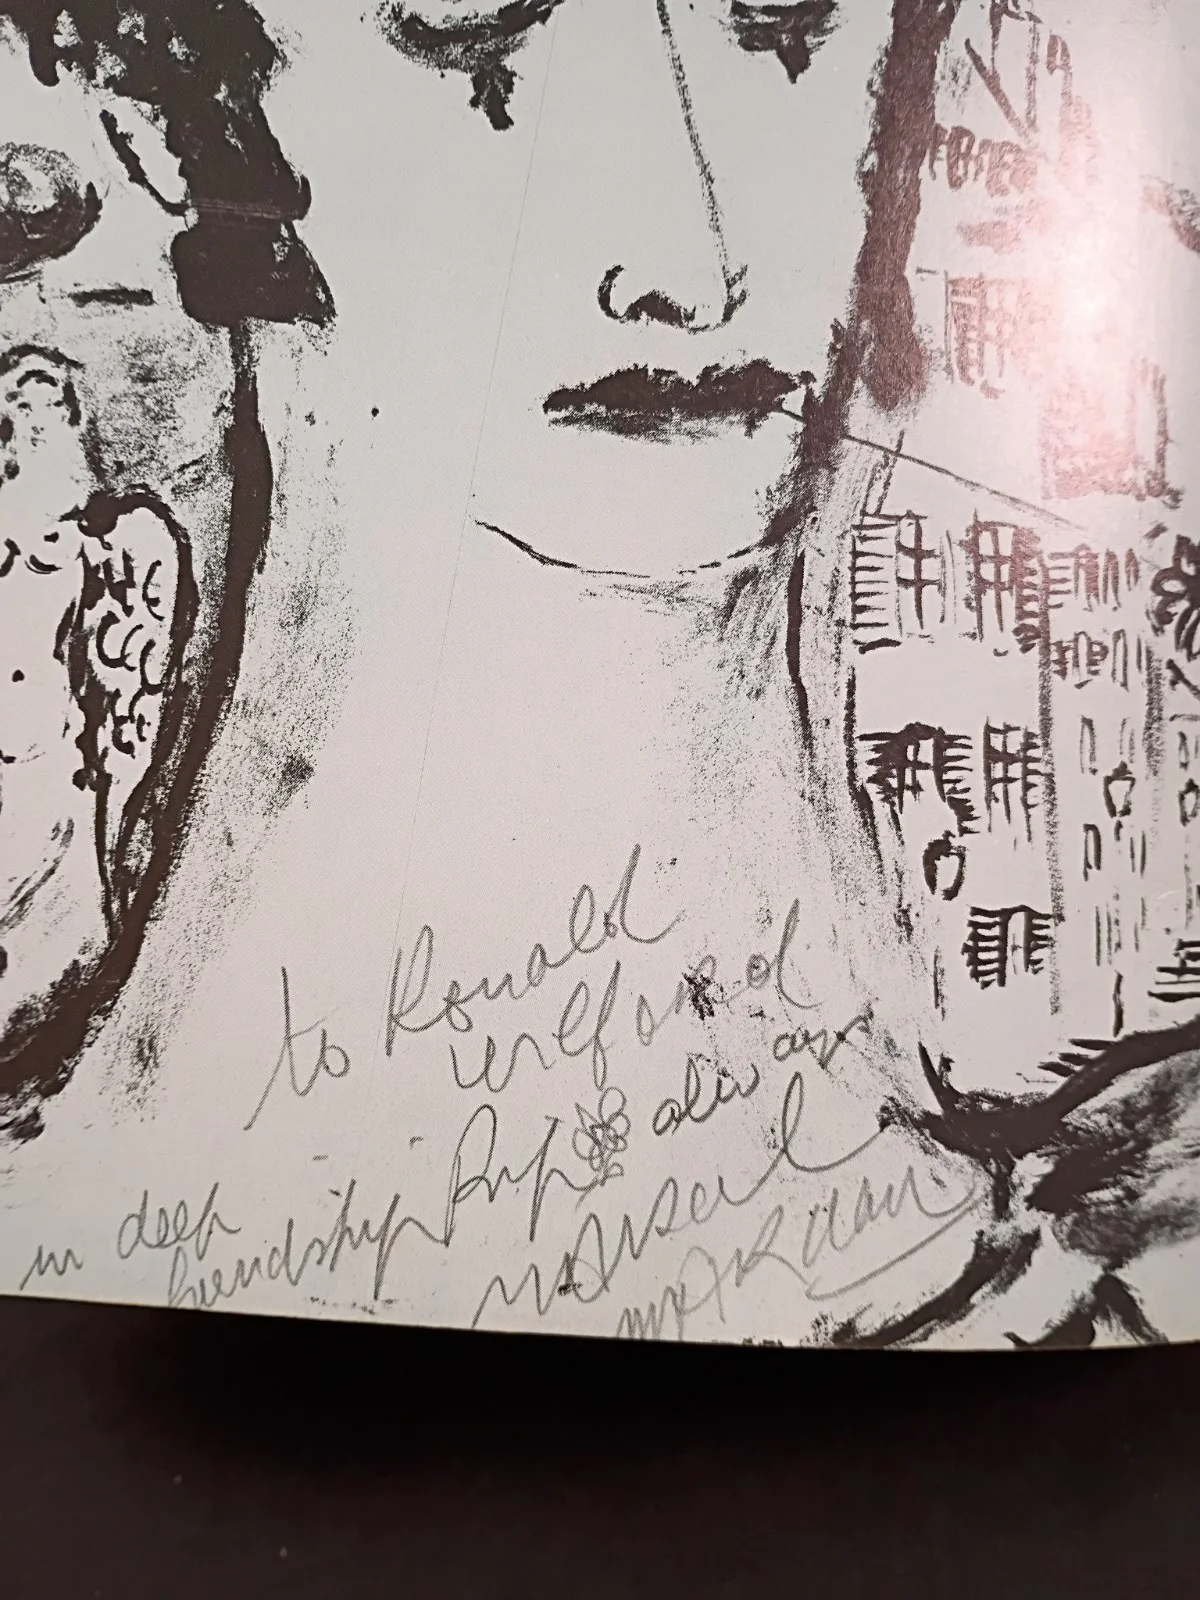 to Ronald
Wilford
in deep
friendship Bip always
Marcel
Marceau